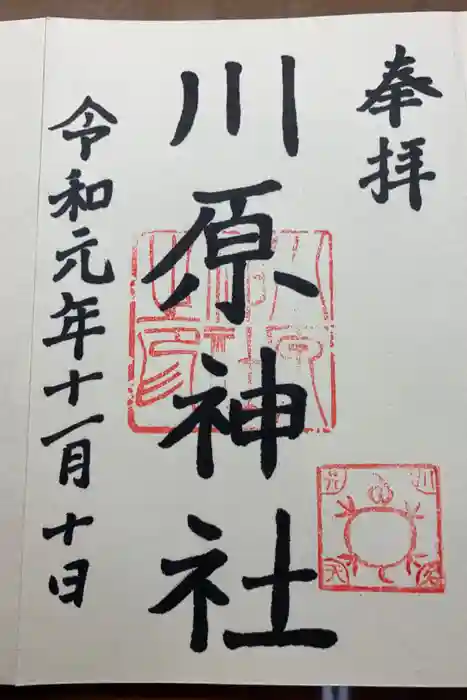 奉拝
川原神社
令和元年十一月十日